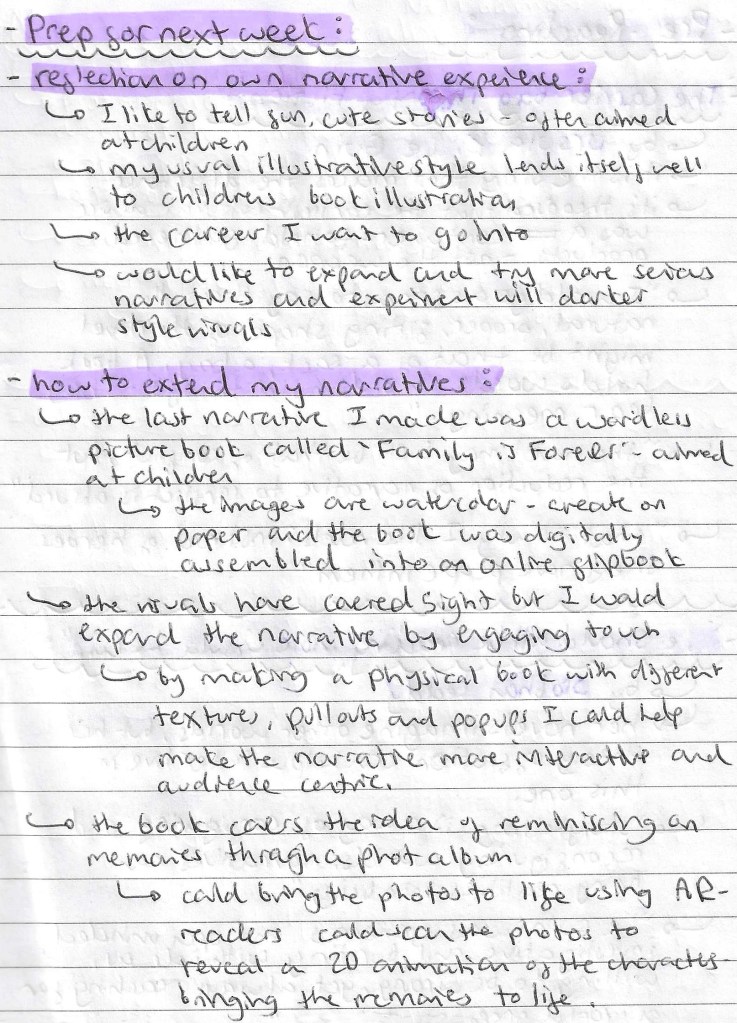 - Prep for next week :
- reflection on own narrative experience :
↳ I like to tell fun, cute stories - often aimed
at children
↳ my usual illustrative style lends itself well
to childrens book illustration
↳ the career I want to go into
↳ would like to expand and try more serious
narratives and experiment will darker
style visuals
- how to extend my narratives :
↳ the last narrative I made was a wordless
picture book called 'Family is Forever' - aimed
at children
↳ the images are watercolor - create on
paper and the book was digitally
assembled into an online flipbook
↳ the visuals have covered sight but I would
expand the narrative by engaging touch
↳ by making a physical book with different
textures, pullouts and popups I could help
make the narrative more interactive and
audience centric.
↳ the book covers the idea of reminiscing on
memories through a phot album
↳ could bring the photos to life using AR -
readers could scan the photos to
reveal a 2D animation of the characters -
bringing the memories to life.